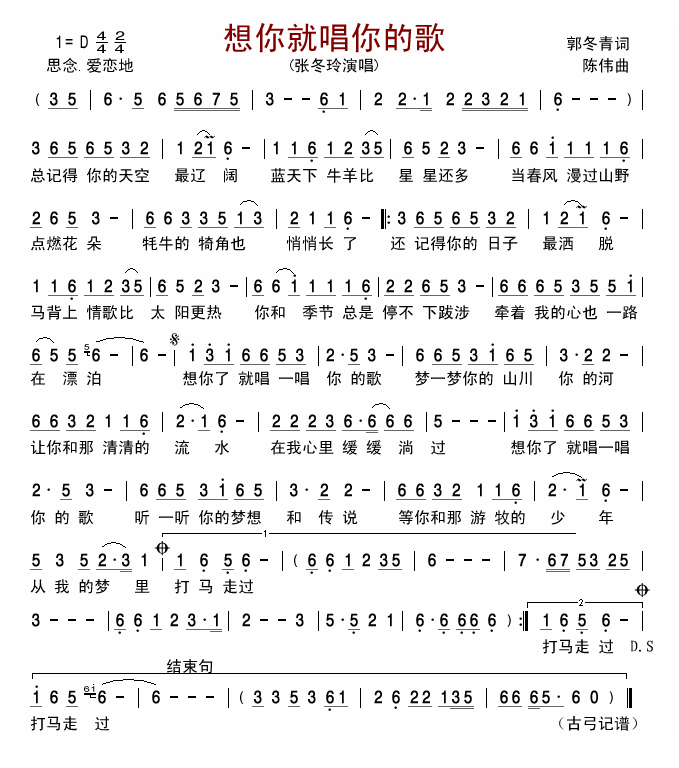 想你就唱你的歌
1= D 4/4 2/4
郭冬青词
思念.爱恋地
(张冬玲演唱)
陈伟曲
( 3 5 | 6· 5 6 5 6 7 5 | 3 - - 6 1 | 2 2·1 2 2 3 2 1 | 6 - - - ) |
3 6 5 6 5 3 2 | 1 2 1 6 - | 1 1 6 1 2 3 5 | 6 5 2 3 - | 6 6 i 1 1 1 6 |
总记得 你的天空 最辽 阔 蓝天下 牛羊比 星 星还多 当春风 漫过山野
2 6 5 3 - | 6 6 3 3 5 1 3 | 2 1 1 6 - ‖: 3 6 5 6 5 3 2 | 1 2 1 6 - |
点燃花 朵 牦牛的 犄角也 悄悄长 了 还 记得你的 日子 最洒 脱
1 1 6 1 2 3 5 | 6 5 2 3 - | 6 6 i 1 1 1 6 | 2 2 6 5 3 - | 6 6 5 3 5 5 i |
马背上 情歌比 太 阳更热 你和 季节 总是 停不 下跋涉 牵着 我的心也 一路
6 5 5 5 6 - | 6 - i 3 i 6 6 5 3 | 2·5 3 - | 6 6 5 3 i 6 5 | 3·2 2 - |
在 漂 泊 想你了 就唱 一唱 你 的歌 梦一梦你的 山川 你 的河
6 6 3 2 1 1 6 | 2·1 6 - | 2 2 2 3 6·6 6 6 | 5 - - - | i 3 i 6 6 5 3 |
让你和那 清清的 流 水 在我心里 缓 缓 淌 过 想你了 就唱一唱
2· 5 3 - | 6 6 5 3 i 6 5 | 3· 2 2 - | 6 6 3 2 1 1 6 | 2· 1 6 - |
你 的 歌 听 一听 你的梦想 和 传 说 等你和那 游 牧的 少 年
1
5 3 5 2·3 1 | 1 6 5 6 - | ( 6 6 1 2 3 5 | 6 - - - | 7 · 6 7 5 3 2 5 |
从 我 的梦 里 打 马 走过
2
3 - - - | 6 6 1 2 3·1 | 2 - - 3 | 5·5 2 1 | 6·6 6 6 6 ) :‖ 1 6 5 6 - |
打马走 过 D.S
结束句
i 6 5 6 i 6 - | 6 - - - | ( 3 3 5 3 6 1 | 2 6 2 2 1 3 5 | 6 6 6 5· 6 0 ) ‖
打马走 过 (古弓记谱)